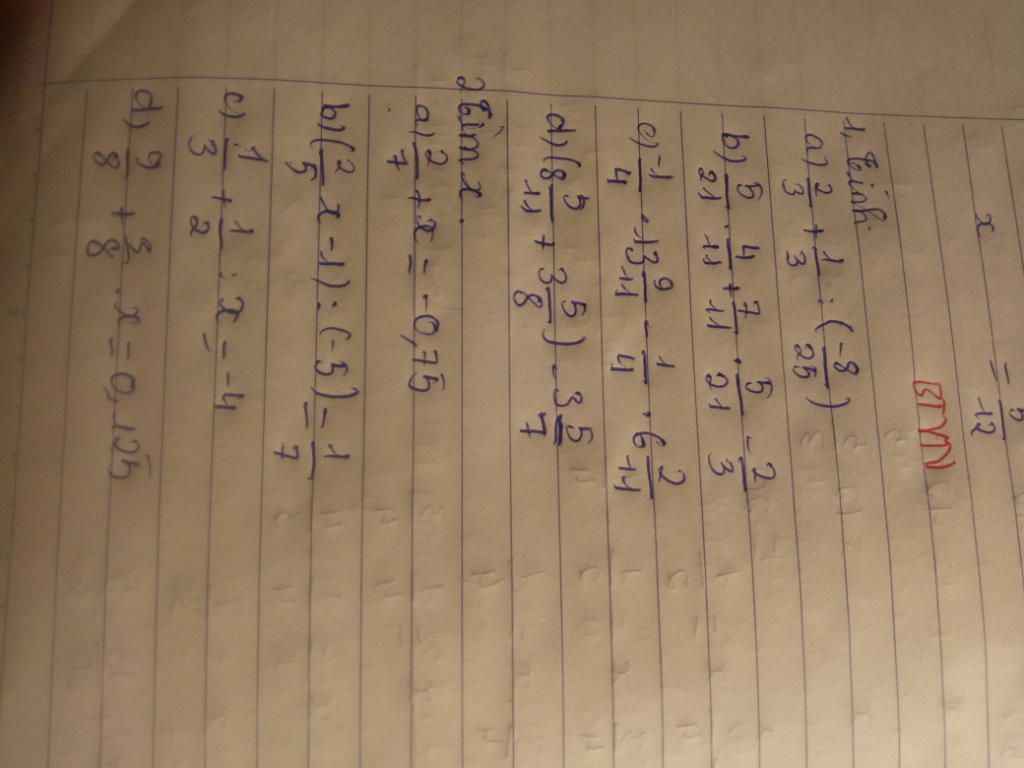 x = 5/12
BTVN
1, Tính.
a) 2/3 + 1/3 : (-8/25)
b) 5/21 . 4/11 + 7/11 . 5/21 - 2/3
c) -1/4 . 13 9/11 - 1/4 . 6 2/11
d) (8 5/11 + 3 5/8) - 3 5/7
2 Tìm x.
a) 2/7 + x = -0,75
b) (2/5 x - 1) : (-5) = 1/7
c) 1/3 + 1/2 : x = -4
d) 9/8 + /8 . x = 0,125